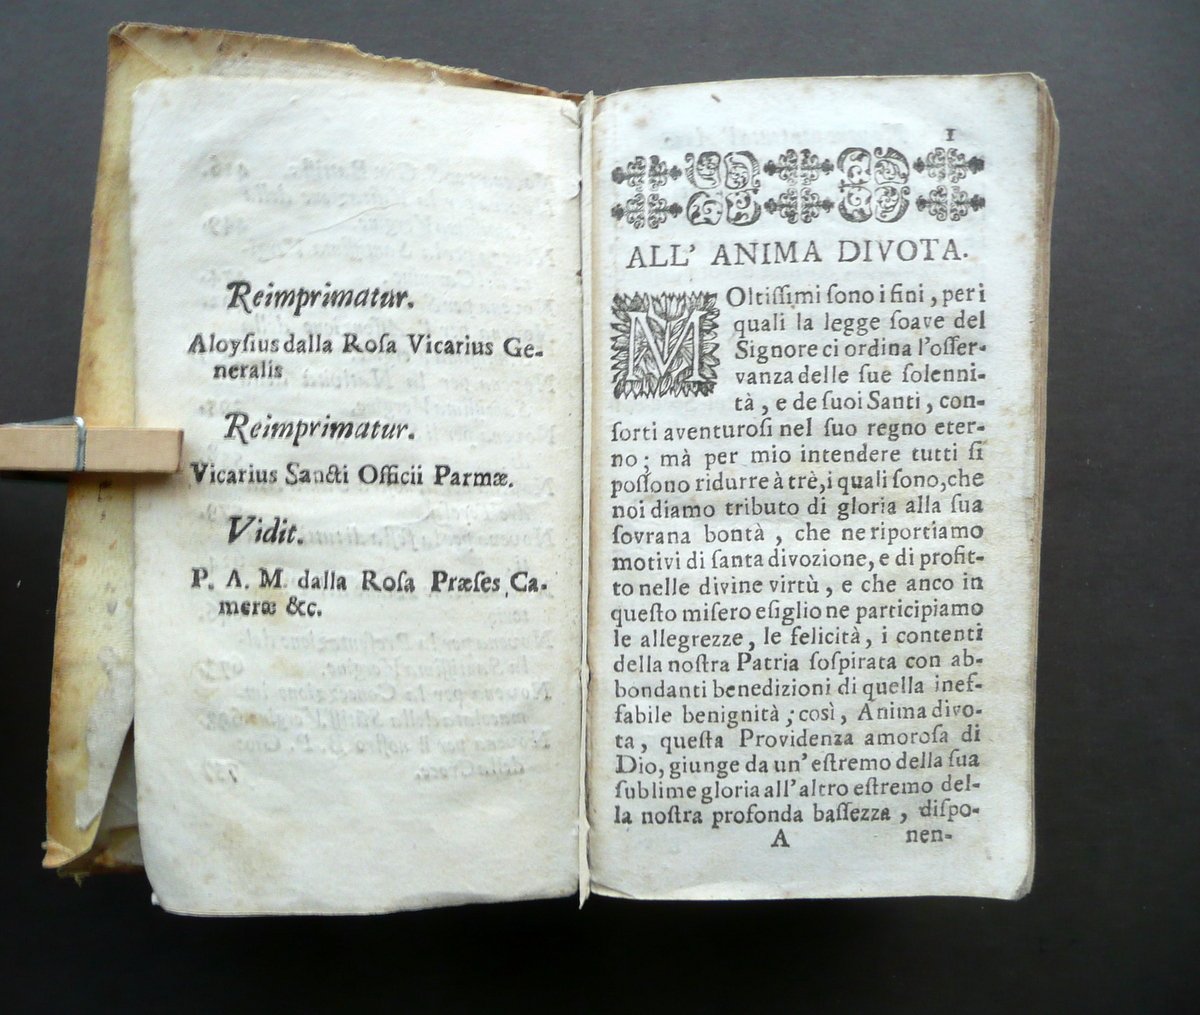 Reimprimatur.
Aloyſius dalla Roſa Vicarius Ge-
neralis
Reimprimatur.
Vicarius Sancti Officii Parmæ.
Vidit.
P. A. M. dalla Roſa Præſes Ca-
meræ &c.
1
ALL' ANIMA DIVOTA.
MOltiſſimi ſono i fini, per i
quali la legge ſoave del
Signore ci ordina l'oſſer-
vanza delle ſue ſolenni-
tà, e de ſuoi Santi, con-
ſorti aventuroſi nel ſuo regno eter-
no; mà per mio intendere tutti ſi
poſſono ridurre à trè, i quali ſono, che
noi diamo tributo di gloria alla ſua
ſovrana bontà, che ne riportiamo
motivi di ſanta divozione, e di profit-
to nelle divine virtù, e che anco in
queſto miſero eſiglio ne participiamo
le allegrezze, le felicità, i contenti
della noſtra Patria ſoſpirata con ab-
bondanti benedizioni di quella inef-
fabile benignità; così, Anima divo-
ta, queſta Providenza amoroſa di
Dio, giunge da un' eſtremo della ſua
ſublime gloria all' altro eſtremo del-
la noſtra profonda baſſezza, diſpo-
A nen-